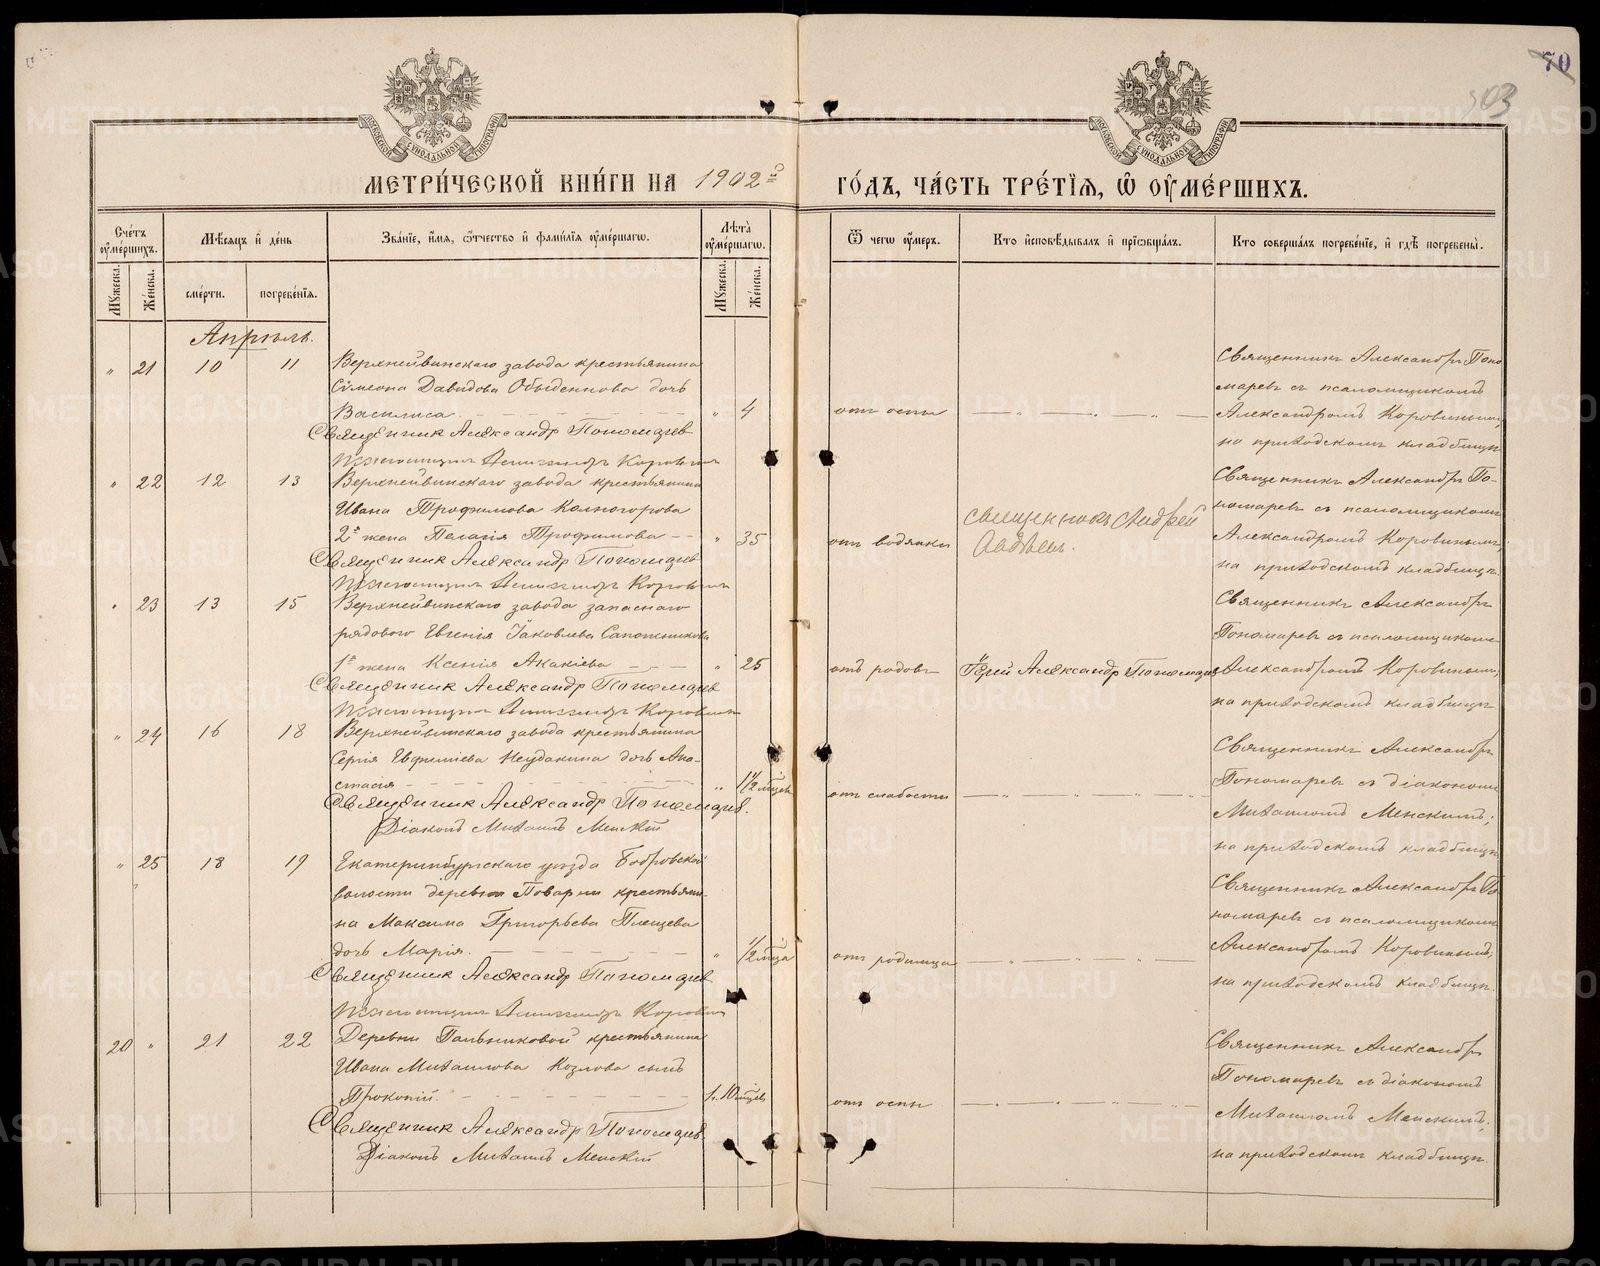 70
503
МОСКОВСКОЙ СѴНОДАЛЬНОЙ ТИПОГРАФІИ
МОСКОВСКОЙ СѴНОДАЛЬНОЙ ТИПОГРАФІИ
МЕТРИ́ЧЕСКОЙ КНИ́ГИ НА 1902й
ГО́ДЪ, ЧА́СТЬ ТРЕ́ТІѦ, Ѿ ОУМЕ́РШИХЪ.
Сче́тъ оуме́ршихъ.
Мѣ́сѧцъ и҆ де́нь
Зва́ніе, и҆́мѧ, ѻ҆́тчество и҆ фами́лїѧ оуме́ршагѡ.
Лѣта̀ оуме́ршагѡ.
Ѿ чегѡ оу́меръ.
Кто и҆сповѣ́дывалъ и҆ прїѡбща́лъ.
Кто соверша́лъ погребе́нїе, и҆ гдѣ̀ погребены̀.
Му́жеска.
Же́нска.
сме́рти.
погребе́нїѧ.
Му́жеска.
Же́нска.
Апрѣль.
" 21 10 11 Верхнейвинскаго завода крестьянина
Сѵмеона Давидова Обыденнова дочь
Василиса. " 4 отъ оспы
Священник Александр Пономарев
Псаломщикъ Александръ Коровинъ
Священникъ Александръ Поно
маревъ съ псаломщикомъ
Александромъ Коровинымъ;
на приходскомъ кладбищѣ
" 22 12 13 Верхнейвинскаго завода крестьянина
Ивана Трофимова Колногорова
2я жена Пелагія Трофимова " 35 отъ водянки
Священник Александр Пономарев
Псаломщикъ Александръ Коровинъ
священникъ Андрей
Авдѣев.
Священникъ Александръ По-
номаревъ съ псаломщикомъ
Александромъ Коровинымъ;
на приходскомъ кладбищѣ.
" 23 13 15 Верхнейвинскаго завода запаснаго
рядового Евгенія Іаковлева Сапожникова
1я жена Ксенія Акакіева " 25 отъ родовъ
Священник Александр Пономарев
Псаломщикъ Александръ Коровинъ
Іерей Александр Пономарев
Священникъ Александръ
Пономаревъ съ псаломщикомъ
Александромъ Коровинымъ;
на приходскомъ кладбищѣ
" 24 16 18 Верхнейвинскаго завода крестьянина
Сергія Евфиміева Неудакина дочь Ана-
стасія " 1 1/2 мѣсец. отъ слабости
Священник Александр Пономарев.
Діаконъ Михаилъ Менскій
Священникъ Александръ
Пономаревъ съ діакономъ
Михаиломъ Менскимъ;
на приходскомъ кладбищѣ
" 25 18 19 Екатеринбургскаго уѣзда Бобровской
волости деревни Поварни крестьяни-
на Максима Григорьева Плещева
дочь Марія. " 1/2 мѣсца отъ родимца
Священник Александр Пономарев
Псаломщикъ Александръ Коровинъ
Священникъ Александръ По
номаревъ съ псаломщикомъ
Александромъ Коровинымъ;
на приходскомъ кладбищѣ.
20 " 21 22 Деревни Пальниковой крестьянина
Ивана Михаилова Козлова сынъ
Прокопій. 1г. 10 мѣсцев отъ оспы
Священник Александр Пономарев.
Діаконъ Михаилъ Менскій
Священникъ Александръ
Пономаревъ съ діакономъ
Михаиломъ Менскимъ;
на приходскомъ кладбищѣ.
METRIKI.GASO-URAL.RU